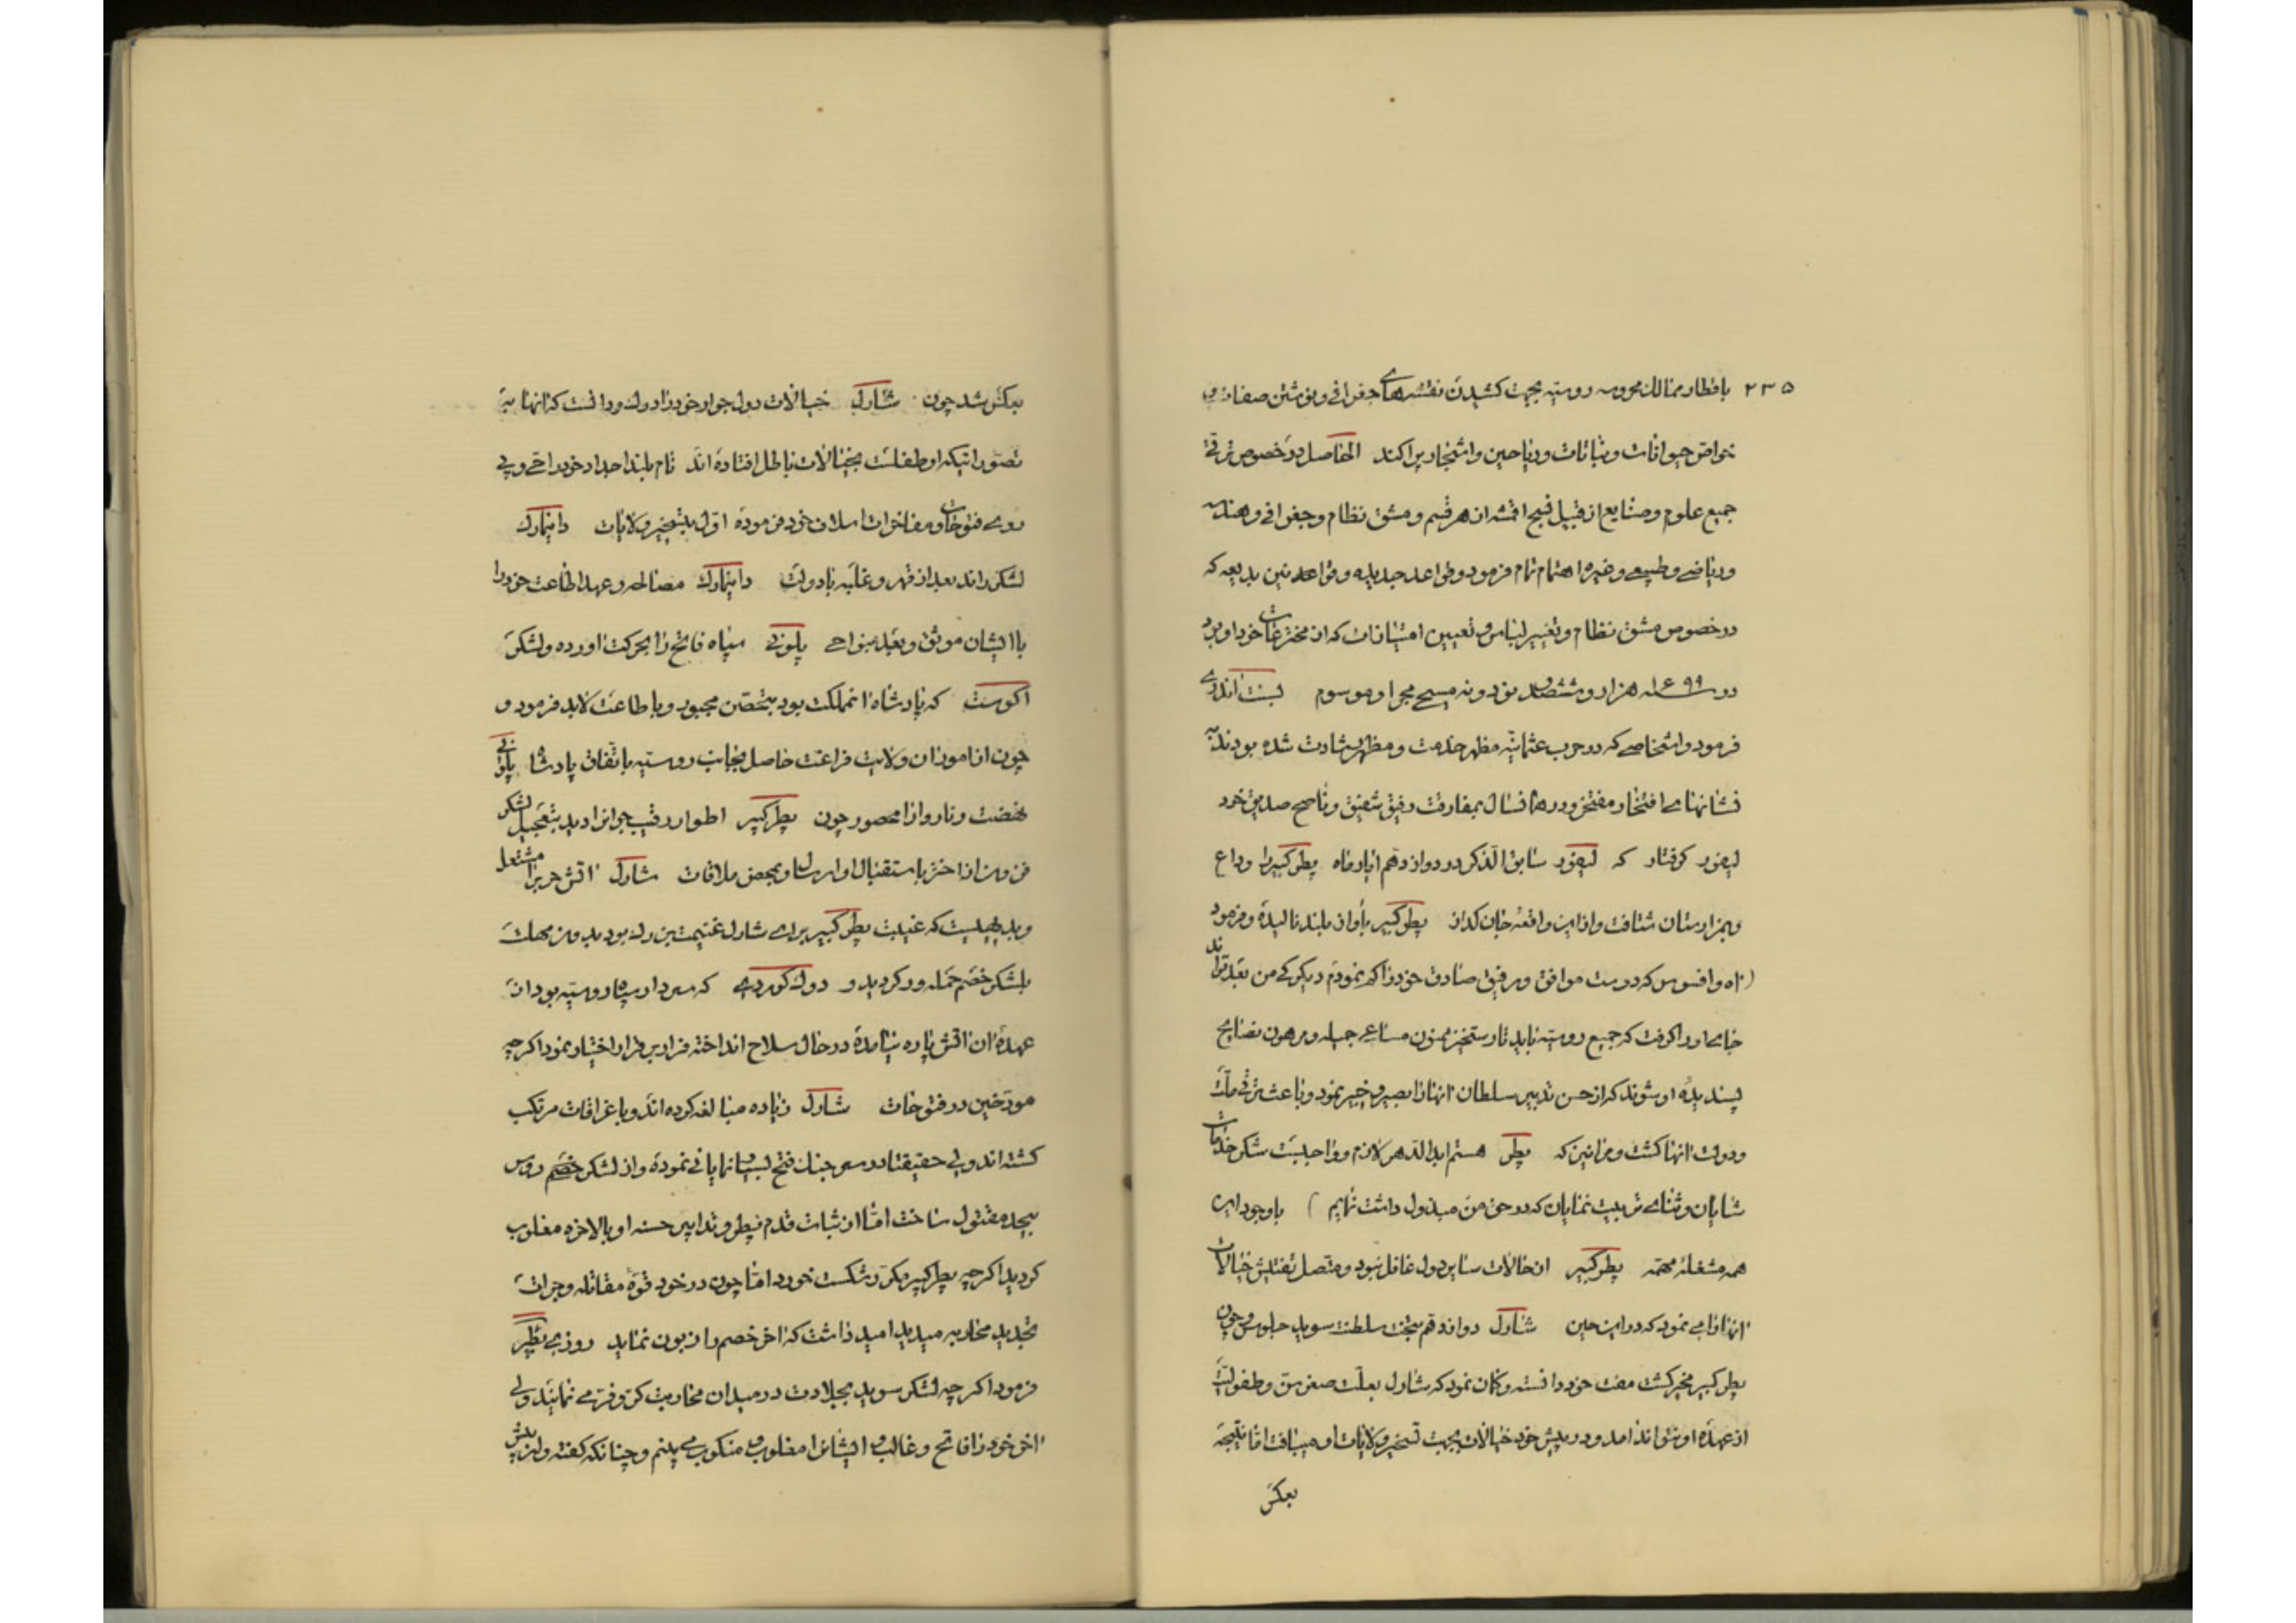 ۲۳۵
باقطار ممالک محروسه روسیه بجهت کشیدن نقشهای جغرافی و نوشتن صفات و
خواص حیوانات و نباتات و ریاحین و اشجار پراکند الحاصل در خصوص ترقی
جمیع علوم و صنایع از قبیل نسج اقمشه از هر قسم و مشق نظام و جغرافی و هندسه
و ریاضی و طبیعی و غیره اهتمام تمام فرمود و قواعد جدیده و قوانین بدیعه که
در خصوص مشق نظام و تغییر لباس و تعیین امتیازات که از مخترعات خود او بود
در سنه ۱۶۹۹ هزار و ششصد و نود و نه مسیحی مجرا و موسوم
فرمود و اشخاصی که در حرب عثمانیه مظهر خدمت و مظهر رشادت شده بودند به
نشانهای افتخار مفتخر و در همانسال بمفارقت رفیق شفیق و ناصح صدیق خود
لیفور گرفتار که لیفور سابق الذکر در دوازدهم ایار ماه پطر کبیر را وداع
و بمزارستان شتافت و از این واقعه جان گداز پطر کبیر بآواز بلند نالیده و فرمود
(آه و افسوس که دوست موافق و رفیق صادق خود را گم نمودم دیگر کی من بعد تواند
جای او را گرفت که جمیع روسیه باید تا رستخیز ممنون مساعی جمیله و مرهون نصایح
پسندیده او شوند که از حسن تدبیر سلطان آنها را بصیر و خبیر نمود و باعث ترقی ملک
و دولت آنها گشت و مرا نیز که پطر هستم ابد الدهر لازم و واجبست شکر خدمات
شایان و ثنای تربیت نمایان که در حق من مبذول داشت نمایم ) باوجود این
همه مشغله مهمه پطر کبیر از حالات سایر دول غافل نبود و متصل تفتیش خیالات
آنها را می نمود که در این حین شارل دوازدهم بتخت سلطنت سوید جلوس و چون
پطر کبیر مخبر گشت مفت خود دانسته و گمان نمود که شارل بعلت صغر سن و طفولیت
از عهده او نتواند آمد و در پیش خود خیالات بجهت تسخیر ولایات او میبافت اما نتیجه
بعکس
بعکس شد چون شارل خیالات دول جوار خود را درک و دانست که آنها به
تصور اینکه او طفلست بخیالات باطل افتاده اند نام بلند اجداد خود را احیا و پی
روی فتوحات و مفاخرات اسلاف خود فرموده اول بتسخیر ولایات دانیمارک
لشکر راند بعد از قهر و غلبه با دولت دانیمارک مصالحه و عهد اطاعت خود را
با ایشان موثق و بعد بنواحی پلونی سپاه فاتح را بحرکت آورده و لشکر
اگوست که پادشاه آنمملکت بود بتحصن مجبور و باطاعت لابد فرمود و
چون از امور آن ولایت فراغت حاصل بجانب روسیه باتفاق پادشاه پلونی
نهضت و ناروا را محصور چون پطر کبیر اطوار رقیب جوانرا دید بتعجیل لشکر
باستقبال او ارسال و بمحض ملاقات شارل آتش حرب را مشتعل
و بدیهیست که غیبت پطر کبیر برای شارل غنیمت بزرگ بود بدون مهلت
بلشکر خصم حمله ور گردید و که سردار سپاه روسیه بود از
عهده آن آتش پاره نیامده در حال سلاح انداخته فرار بر قرار اختیار نمود اگر چه
مورخین در فتوحات شارل زیاده مبالغه کرده اند و باغراقات مرتکب
گشته اند ولی حقیقتا در سه جنگ فتح بسیار نمایانی نموده و از لشکر خصم روس
بیحد مقتول ساخت اما از ثبات قدم پطر و تدابیر حسنه او بالاخره مغلوب
گردید اگر چه پطر کبیر مکرر شکست خورد اما چون در خود قوه مقاتله و جرات
تجدید محاربه میدید امید داشت که آخر خصم را زبون نماید روزی پطر
فرمود اگر چه لشکر سوید بجلادت در میدان محاربت کر و فر می نمایند ولی
آخر خود را فاتح و غالب و ایشانرا مغلوب و منکوب می بینم و چنانکه گفته